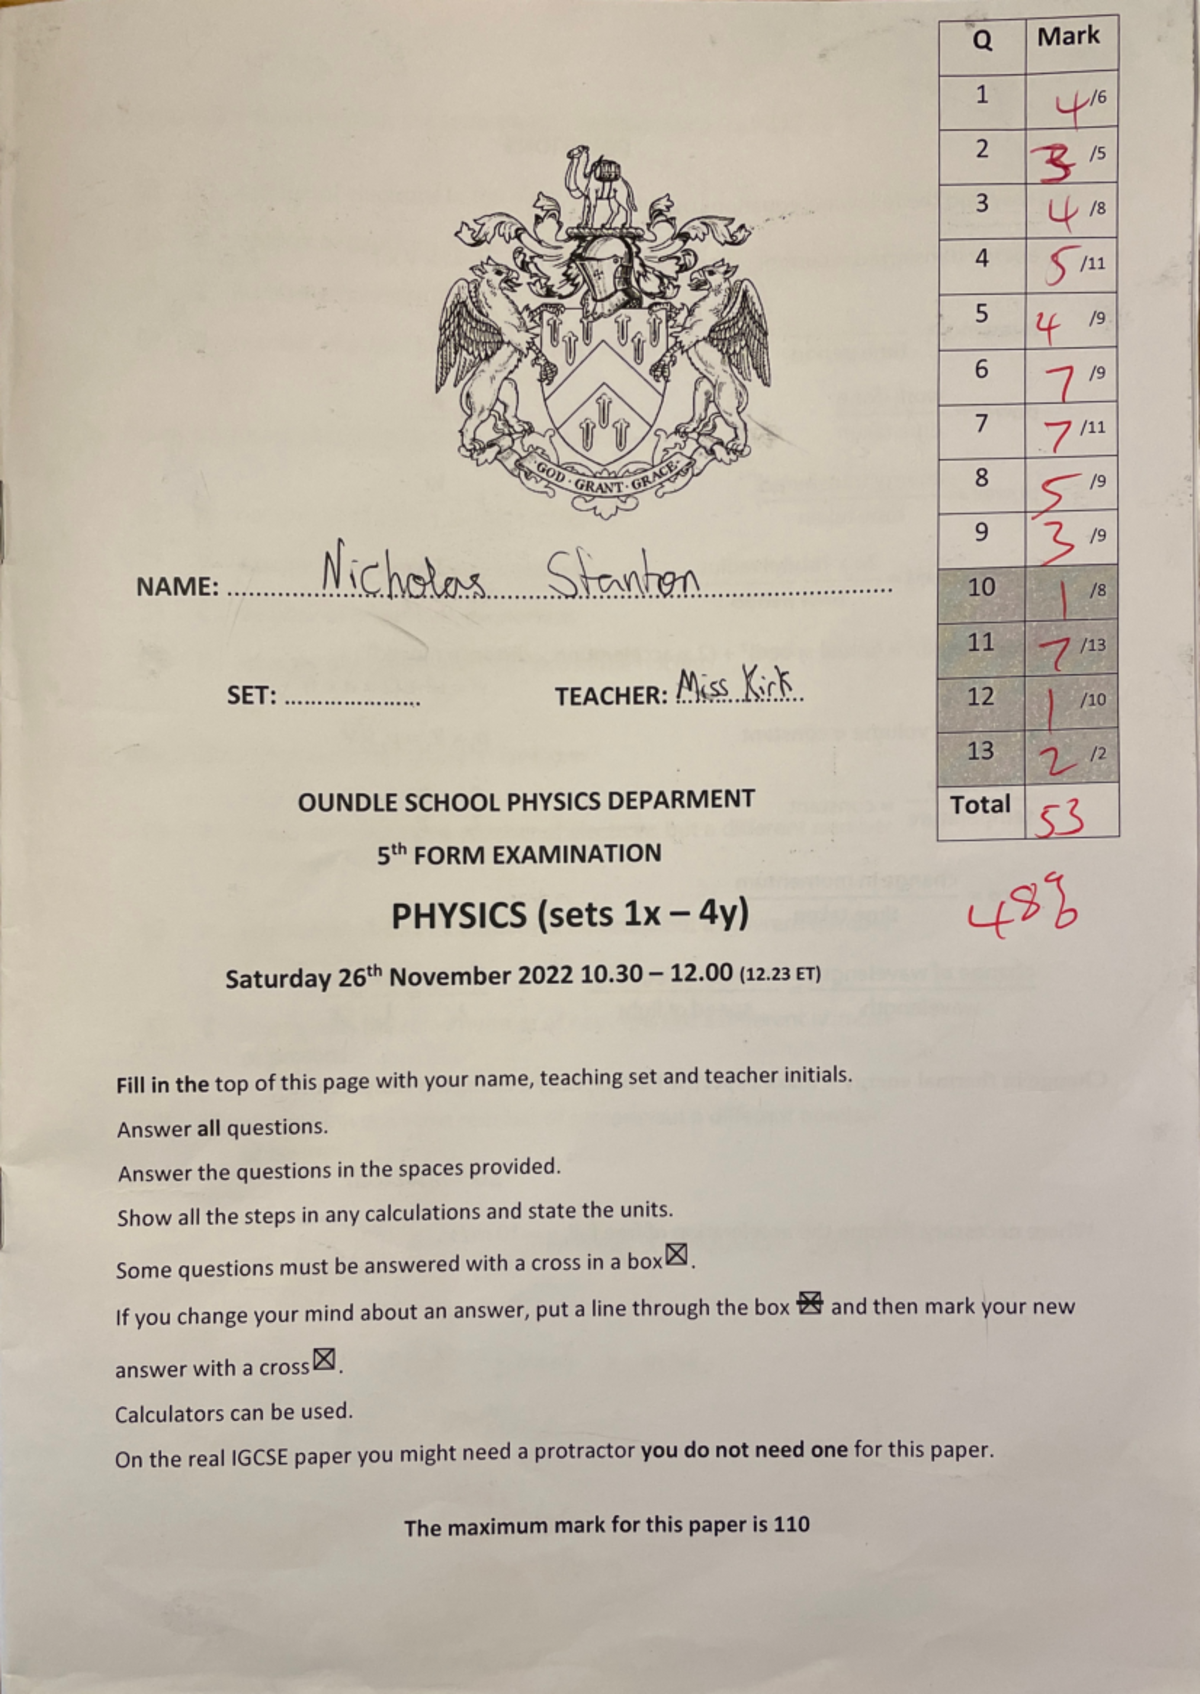 Q Mark
1 4 /6
2 3 /5
3 4 /8
4 5 /11
5 4 /9
6 7 /9
7 7 /11
8 5 /9
9 3 /9
10 1 /8
11 7 /13
12 1 /10
13 2 /2
Total 53
48%
GOD · GRANT · GRACE
NAME: Nicholas Stanton
SET: .................... TEACHER: Miss Kirk
OUNDLE SCHOOL PHYSICS DEPARMENT
5th FORM EXAMINATION
PHYSICS (sets 1x – 4y)
Saturday 26th November 2022 10.30 – 12.00 (12.23 ET)
Fill in the top of this page with your name, teaching set and teacher initials.
Answer all questions.
Answer the questions in the spaces provided.
Show all the steps in any calculations and state the units.
Some questions must be answered with a cross in a box ☒.
If you change your mind about an answer, put a line through the box ☒ and then mark your new
answer with a cross ☒.
Calculators can be used.
On the real IGCSE paper you might need a protractor you do not need one for this paper.
The maximum mark for this paper is 110